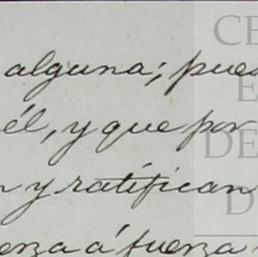 alguna; pues
él, y que por
n y ratifican
erza á fuerza
CE
E
DE
D